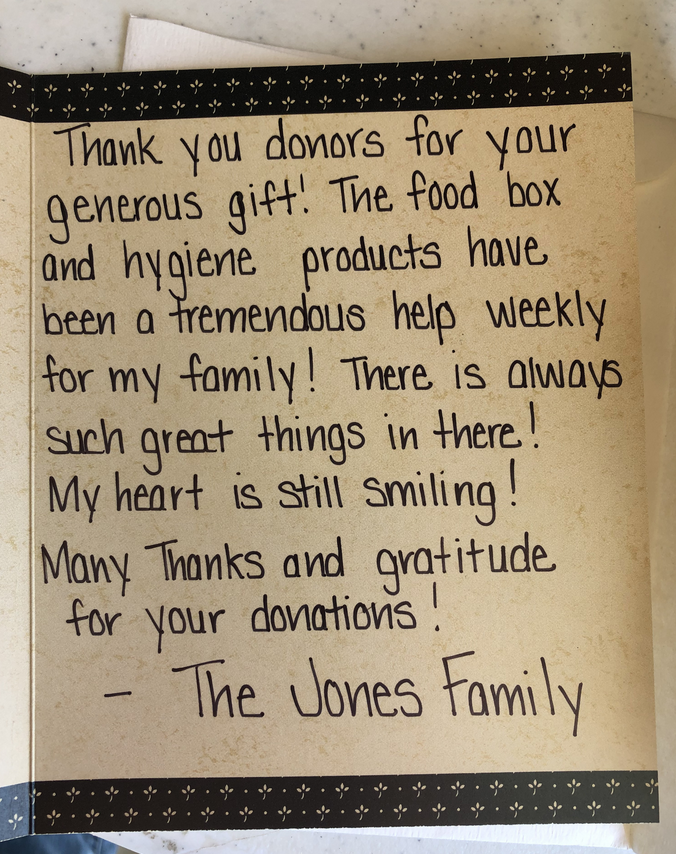 Thank you donors for your
generous gift! The food box
and hygiene products have
been a tremendous help weekly
for my family! There is always
such great things in there!
My heart is still smiling!
Many Thanks and gratitude
for your donations!
- The Jones Family